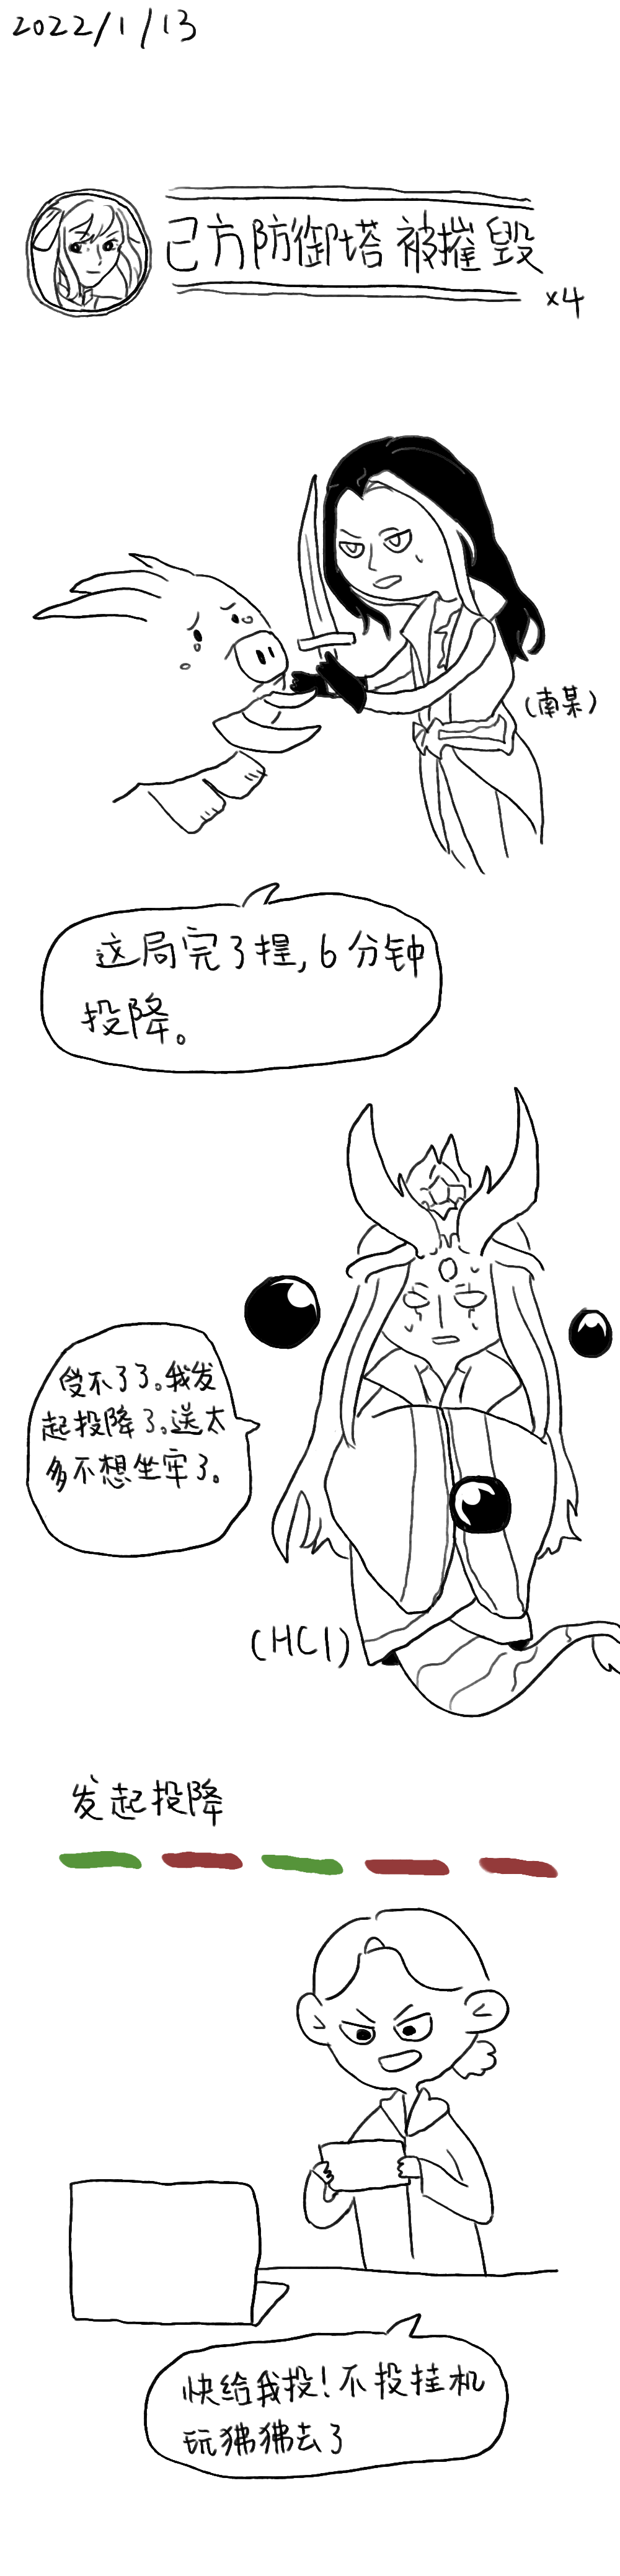 2022/1/13
己方防御塔被摧毁
x4
(南某)
这局完了捏,6分钟
投降。
受不了了。我发
起投降了。送太
多不想坐牢了。
(HCl)
发起投降
快给我投!不投挂机
玩狒狒去了